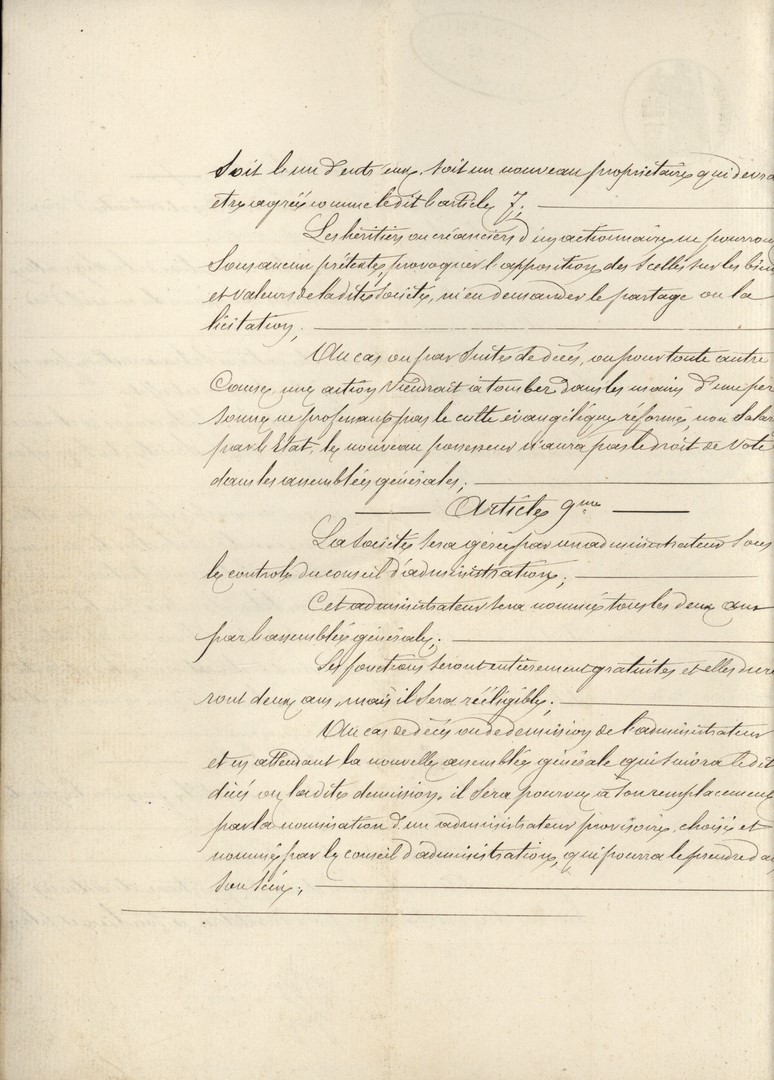 Soit l'un d'entr'eux, soit un nouveau propriétaire qui devra
etre agréé comme le dit l'article 7;
Les héritiers ou créanciers d'un actionnaire ne pourron
Sous aucun prétexte, provoquer l'apposition des scellés sur les bien
et valeurs de ladite Société, ni en demander le partage ou la
licitation;
Au cas ou par suite de décès, ou pour toute autre
Cause, une action viendrait à tomber dans les mains d'une per
sonne ne professant pas le culte évangélique réformé, non Salar
par l'Etat, le nouveau possesseur n'aura pas le droit de vote
dans les assemblées générales;
Article 9me
La Société sera gérée par un administrateur sous
le controle du conseil d'administration;
Cet administrateur sera nommé tous les deux ans
par l'assemblée générale;
Ses fonctions seront entièrement gratuites et elles dure
ront deux ans, mais il sera rééligible;
Au cas de décès ou de demission de l'administrateur
et en attendant la nouvelle assemblée générale qui suivra le dit
décès ou ladite demission, il sera pourvu à son remplacement
par la nomination d'un administrateur provisoire, choisi et
nommé par le conseil d'administration, qui pourra le prendre da
son sein;